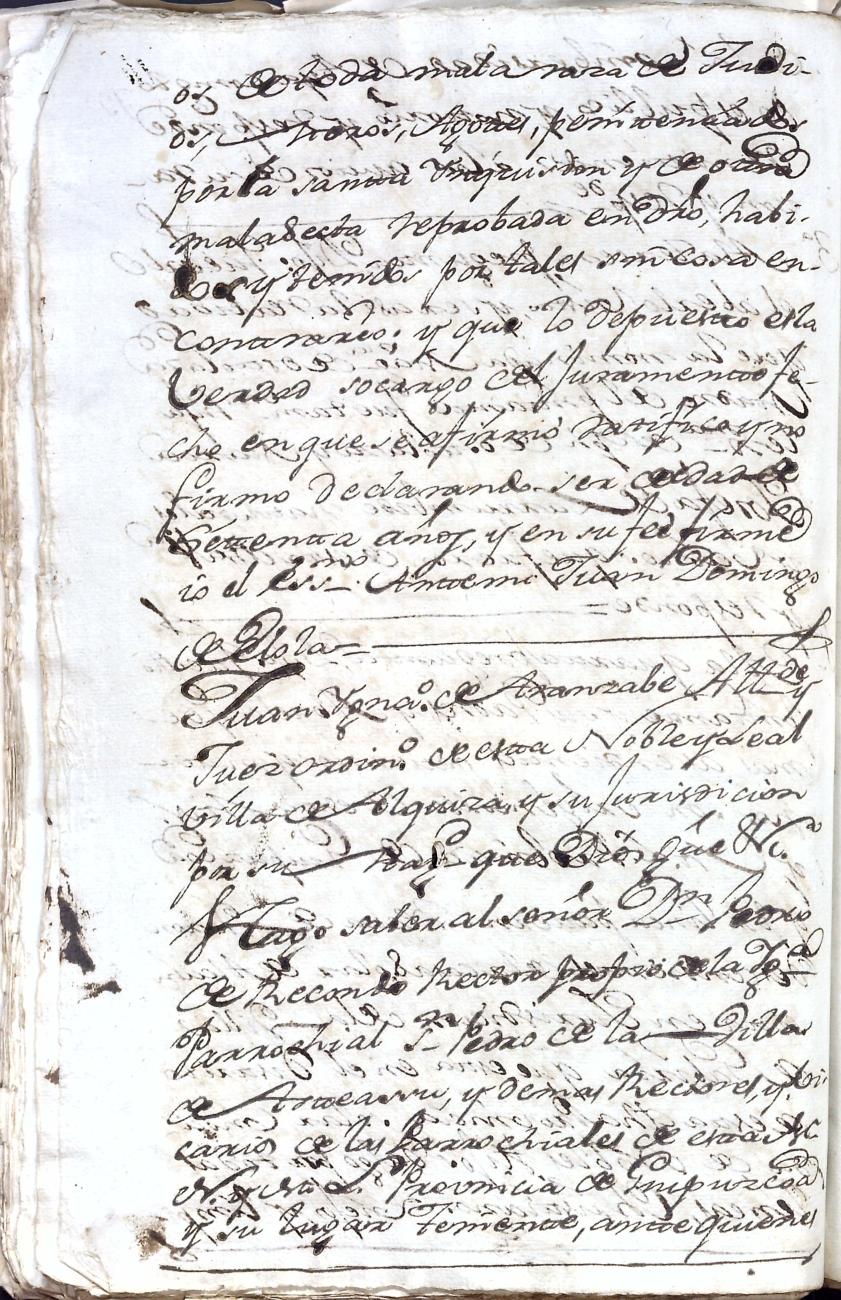 os, de toda mala raza de Judi-
os, Moros, Agotes, penitenciados
por la santa Ynquision y de otra
mala secta reprobada en dro, habi-
dos y tenidos por tales sin cosa en
contrario; y que lo depuesto es la
Verdad socargo del Juramento fe-
cho en que se afirmó ratificó y no
firmo declarando ser de edad de
Setenta años, y en su fee firme
io el Ess.no Antemi Juan Domingo
de Elola=
Juan Ygna.o de Aranzabe Alld.e y
Juez ordin.o de esta Noble y Leal
Villa de Alquiza, y su Jurisdicion
por su Mag.d que Dios gûe &c.a
Hago saber al señor Dn Pedro
de Recondo Rector propio de la Yg.a
Parrochial Sn Pedro de la Villa
de Asteasu, y demas Rectores, y Vi-
carios de las Parrochiales de esta
N. y L. Provincia de Guipuzcoa
y su lugar Teniente, ante quienes